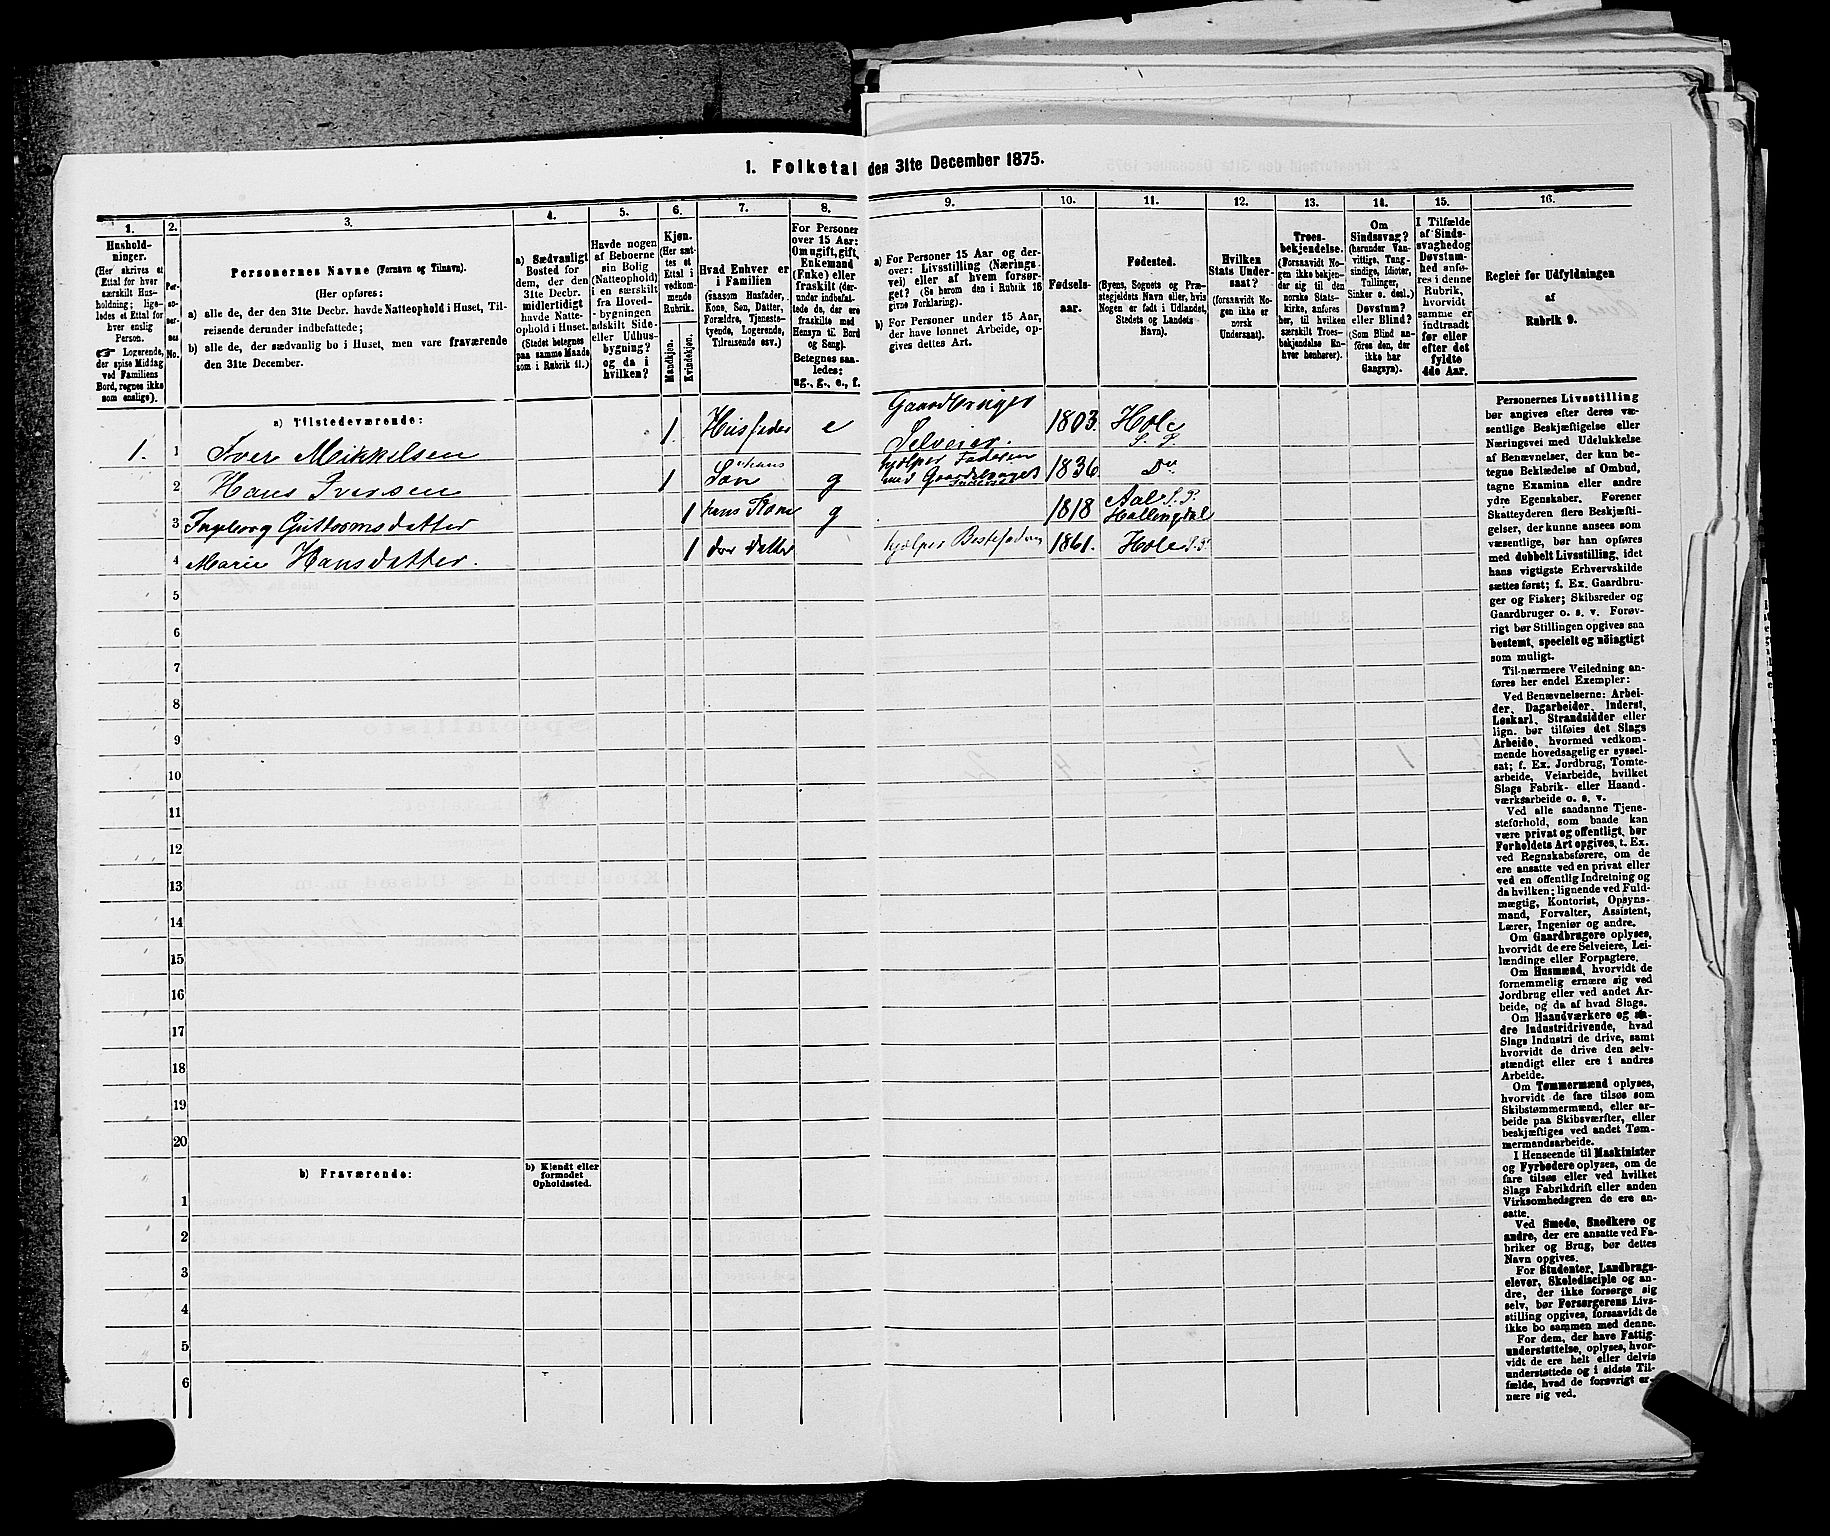 1. Folketal den 31te December 1875.
1.
Hushold-
ninger.
(Her skrives et
Ettal for hver
særskilt Hus-
holdning; lige-
ledes et Ettal for
hver enslig
Person.
☞ Logerende,
der spise Middag
ved Familiens
Bord, regnes ikke
som enslige).
2.
Per-
so-
ner-
nes
No.
3.
Personernes Navne (Fornavn og Tilnavn).
(Her opføres:
a) alle de, der den 31te Decbr. havde Natteophold i Huset, Til-
reisende derunder indbefattede;
b) alle de, der sædvanlig bo i Huset, men vare fraværende
den 31te December.
4.
a) Sædvanligt
Bosted for
dem, der den
31te Decbr.
midlertidigt
havde Natte-
ophold i Huset.
(Stedet betegnes
paa samme Maade
som i Rubrik 11.)
5.
Havde nogen
af Beboerne
sin Bolig
(Natteophold)
i en særskilt
fra Hoved-
bygningen
adskilt Side-
eller Udhus-
bygning?
og da i
hvilken?
6.
Kjøn.
(Her sæt-
tes et
Ettal i
vedkom-
mende
Rubrik.
Mandkjøn.
Kvindekjøn.
7.
Hvad Enhver er
i Familien
(saasom Husfader,
Kone, Søn, Datter,
Forældre, Tjeneste-
tyende, Logerende,
Tilreisende osv.)
8.
For Personer
over 15 Aar:
Om ugift, gift,
Enkemand
(Enke) eller
fraskilt (der-
under indbefat-
tede de, der ere
fraskilte med
Hensyn til Bord
og Seng).
Betegnes saa-
ledes:
ug., g., e., f.
9.
a) For Personer 15 Aar og der-
over: Livsstilling (Nærings-
vei) eller af hvem forsør-
get? (Se herom den i Rubrik 16
givne Forklaring).
b) For Personer under 15 Aar,
der have lønnet Arbeide, op-
gives dettes Art.
10.
Fødsels-
aar.
11.
Fødested.
(Byens, Sognets og Præ-
stegjeldets Navn eller, hvis
Nogen er født i Udlandet,
Stedets og Landets
Navn).
12.
Hvilken
Stats Under-
saat?
(forsaavidt No-
gen ikke er
norsk
Undersaat).
13.
Troes-
bekjendelse.
(Forsaavidt No-
gen ikke bekjen-
der sig til den
norske Stats-
kirke, anføres
her, til hvilken
særskilt Troes-
bekjendelse En-
hver henhører).
14.
Om
Sindssvag?
(herunder Van-
vittige, Tung-
sindige, Idioter,
Tullinger,
Sinker o. desl.)
Døvstum?
eller Blind?
(Som Blind an-
føres den, der
ikke har
Gangsyn).
15.
I Tilfælde
af Sinds-
svaghed og
Døvstum-
hed anfø-
res i denne
Rubrik,
hvorvidt
samme er
indtraadt
før eller
efter det
fyldte
4de Aar.
16.
Regler for Udfyldningen
af
Rubrik 9.
a) Tilstedeværende:
1. 1 Iver Mikkelsen 1. Husfader e Gaardbruger Selveier. 1803. Hole S. P.
2 Hans Iversen 1 Søn hans g hjælper Faderen med Gaardsbruget 1836. Do
3 Ingeborg Guttormsdatter 1 hans Kone g 1818 Aal S. P. Hallingdal
4 Marie Hansdatter. 1 der Datter hjælper Bestefaderen 1861. Hole S. P.
5
6
7
8
9
10
11
12
13
14
15
16
17
18
19
20
b) Fraværende:
b) Kjendt eller
formodet
Opholdssted.
1
2
3
4
5
6
Personernes Livsstilling
bør angives efter deres væ-
sentlige Beskjæftigelse eller
Næringsvei med Udelukkelse
af Benævnelser, der kun be-
tegne Beklædelse af Ombud,
tagne Examina eller andre
ydre Egenskaber. Forener
Skatteyderen flere Beskjæfti-
gelser, der kunne ansees som
væsentlige, bør han opføres
med dobbelt Livsstilling, idet
hans vigtigste Erhvervskilde
sættes først; f. Ex. Gaardbru-
ger og Fisker; Skibsreder og
Gaardbruger o. s. v. Forøv-
rigt bør Stillingen opgives saa
bestemt, specielt og nöiagtigt
som muligt.
Til nærmere Veiledning an-
føres her endel Exempler:
Ved Benævnelserne: Arbei-
der, Dagarbeider, Inderst,
Løskarl, Strandsidder eller
lign. bør tilføies det Slags
Arbeide, hvormed vedkom-
mende hovedsagelig er syssel-
sat; f. Ex. Jordbrug, Tomte-
arbeide, Veiarbeide, hvilket
Slags Fabrik- eller Haand-
værksarbeide o. s. v.
Ved alle saadanne Tjene-
steforhold, som baade kan
være privat og offentligt, bør
Forholdets Art opgives, t. Ex.
ved Regnskabsførere, om de
ere ansatte ved en privat eller
ved en offentlig Indretning og
da hvilken; lignende ved Fuld-
mægtig, Kontorist, Opsyns-
mand, Forvalter, Assistent,
Lærer, Ingeniør og andre.
Om Gaardbrugere oplyses,
hvorvidt de ere Selveiere, Lei-
lændinge eller Forpagtere.
Om Husmænd, hvorvidt de
fornemmelig ernære sig ved
Jordbrug eller ved andet Ar-
beide, og da af hvad Slags.
Om Haandværkere og an-
dre Industridrivende, hvad
Slags Industri de drive, samt
hvorvidt de drive den selv-
stændigt eller ere i andres
Arbeide.
Om Tømmermænd oplyses,
hvorvidt de fare tilsøs som
Skibstømmermænd, eller ar-
beide paa Skibsværfter, eller
beskjæftiges ved andet Tøm-
mermandsarbeide.
I Henseende til Maskinister
og Fyrbødere oplyses, om de
fare tilsøs eller ved hvilket
Slags Fabrikdrift eller anden
Virksomhedsgren de ere an-
satte.
Ved Smede, Snedkere og
andre, der ere ansatte ved Fa-
briker og Brug, bør dettes
Navn opgives.
For Studenter, Landbrugs-
elever, Skoledisciple og an-
dre, der ikke forsørge sig
selv, bør Forsørgerens Livs-
stilling opgives, forsaavidt de
ikke bo sammen med denne.
For dem, der have Fattig-
understøttelse, oplyses, hvor-
vidt de ere helt eller delvis
understøttede og i sidste Til-
fælde, hvad de forøvrigt er-
nære sig ved.